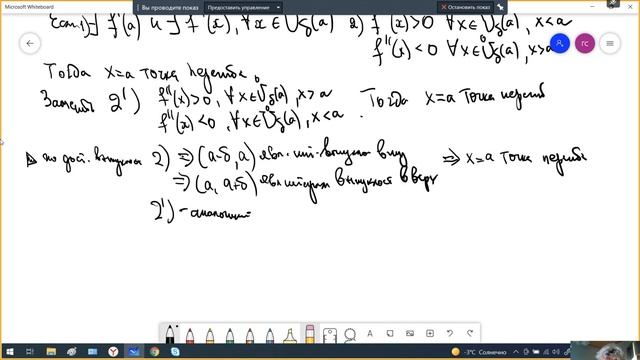 Microsoft Whiteboard
Вы проводите показ
Предоставить управление
Остановить показ
Если 1) ∃ f'(a) и ∃ f''(x), ∀x∈U̇δ(a) 2) f''(x)>0 ∀x∈U̇δ(a), x<a
f''(x)<0 ∀x∈U̇δ(a), x>a
ГС
Тогда x=a точка перегиба
2') f''(x)>0, ∀x∈U̇δ(a), x>a
f''(x)<0, ∀x∈U̇δ(a), x<a. Тогда x=a точка перегиб
▷ по дост. выпуклости 2) ⇒ (a-δ, a) явл. инт. выпукло вниз ⇒ x=a точка перегиба
⇒ (a, a+δ) явл интервал выпуклост вверх
2') - аналогич
-3°C Солнечно